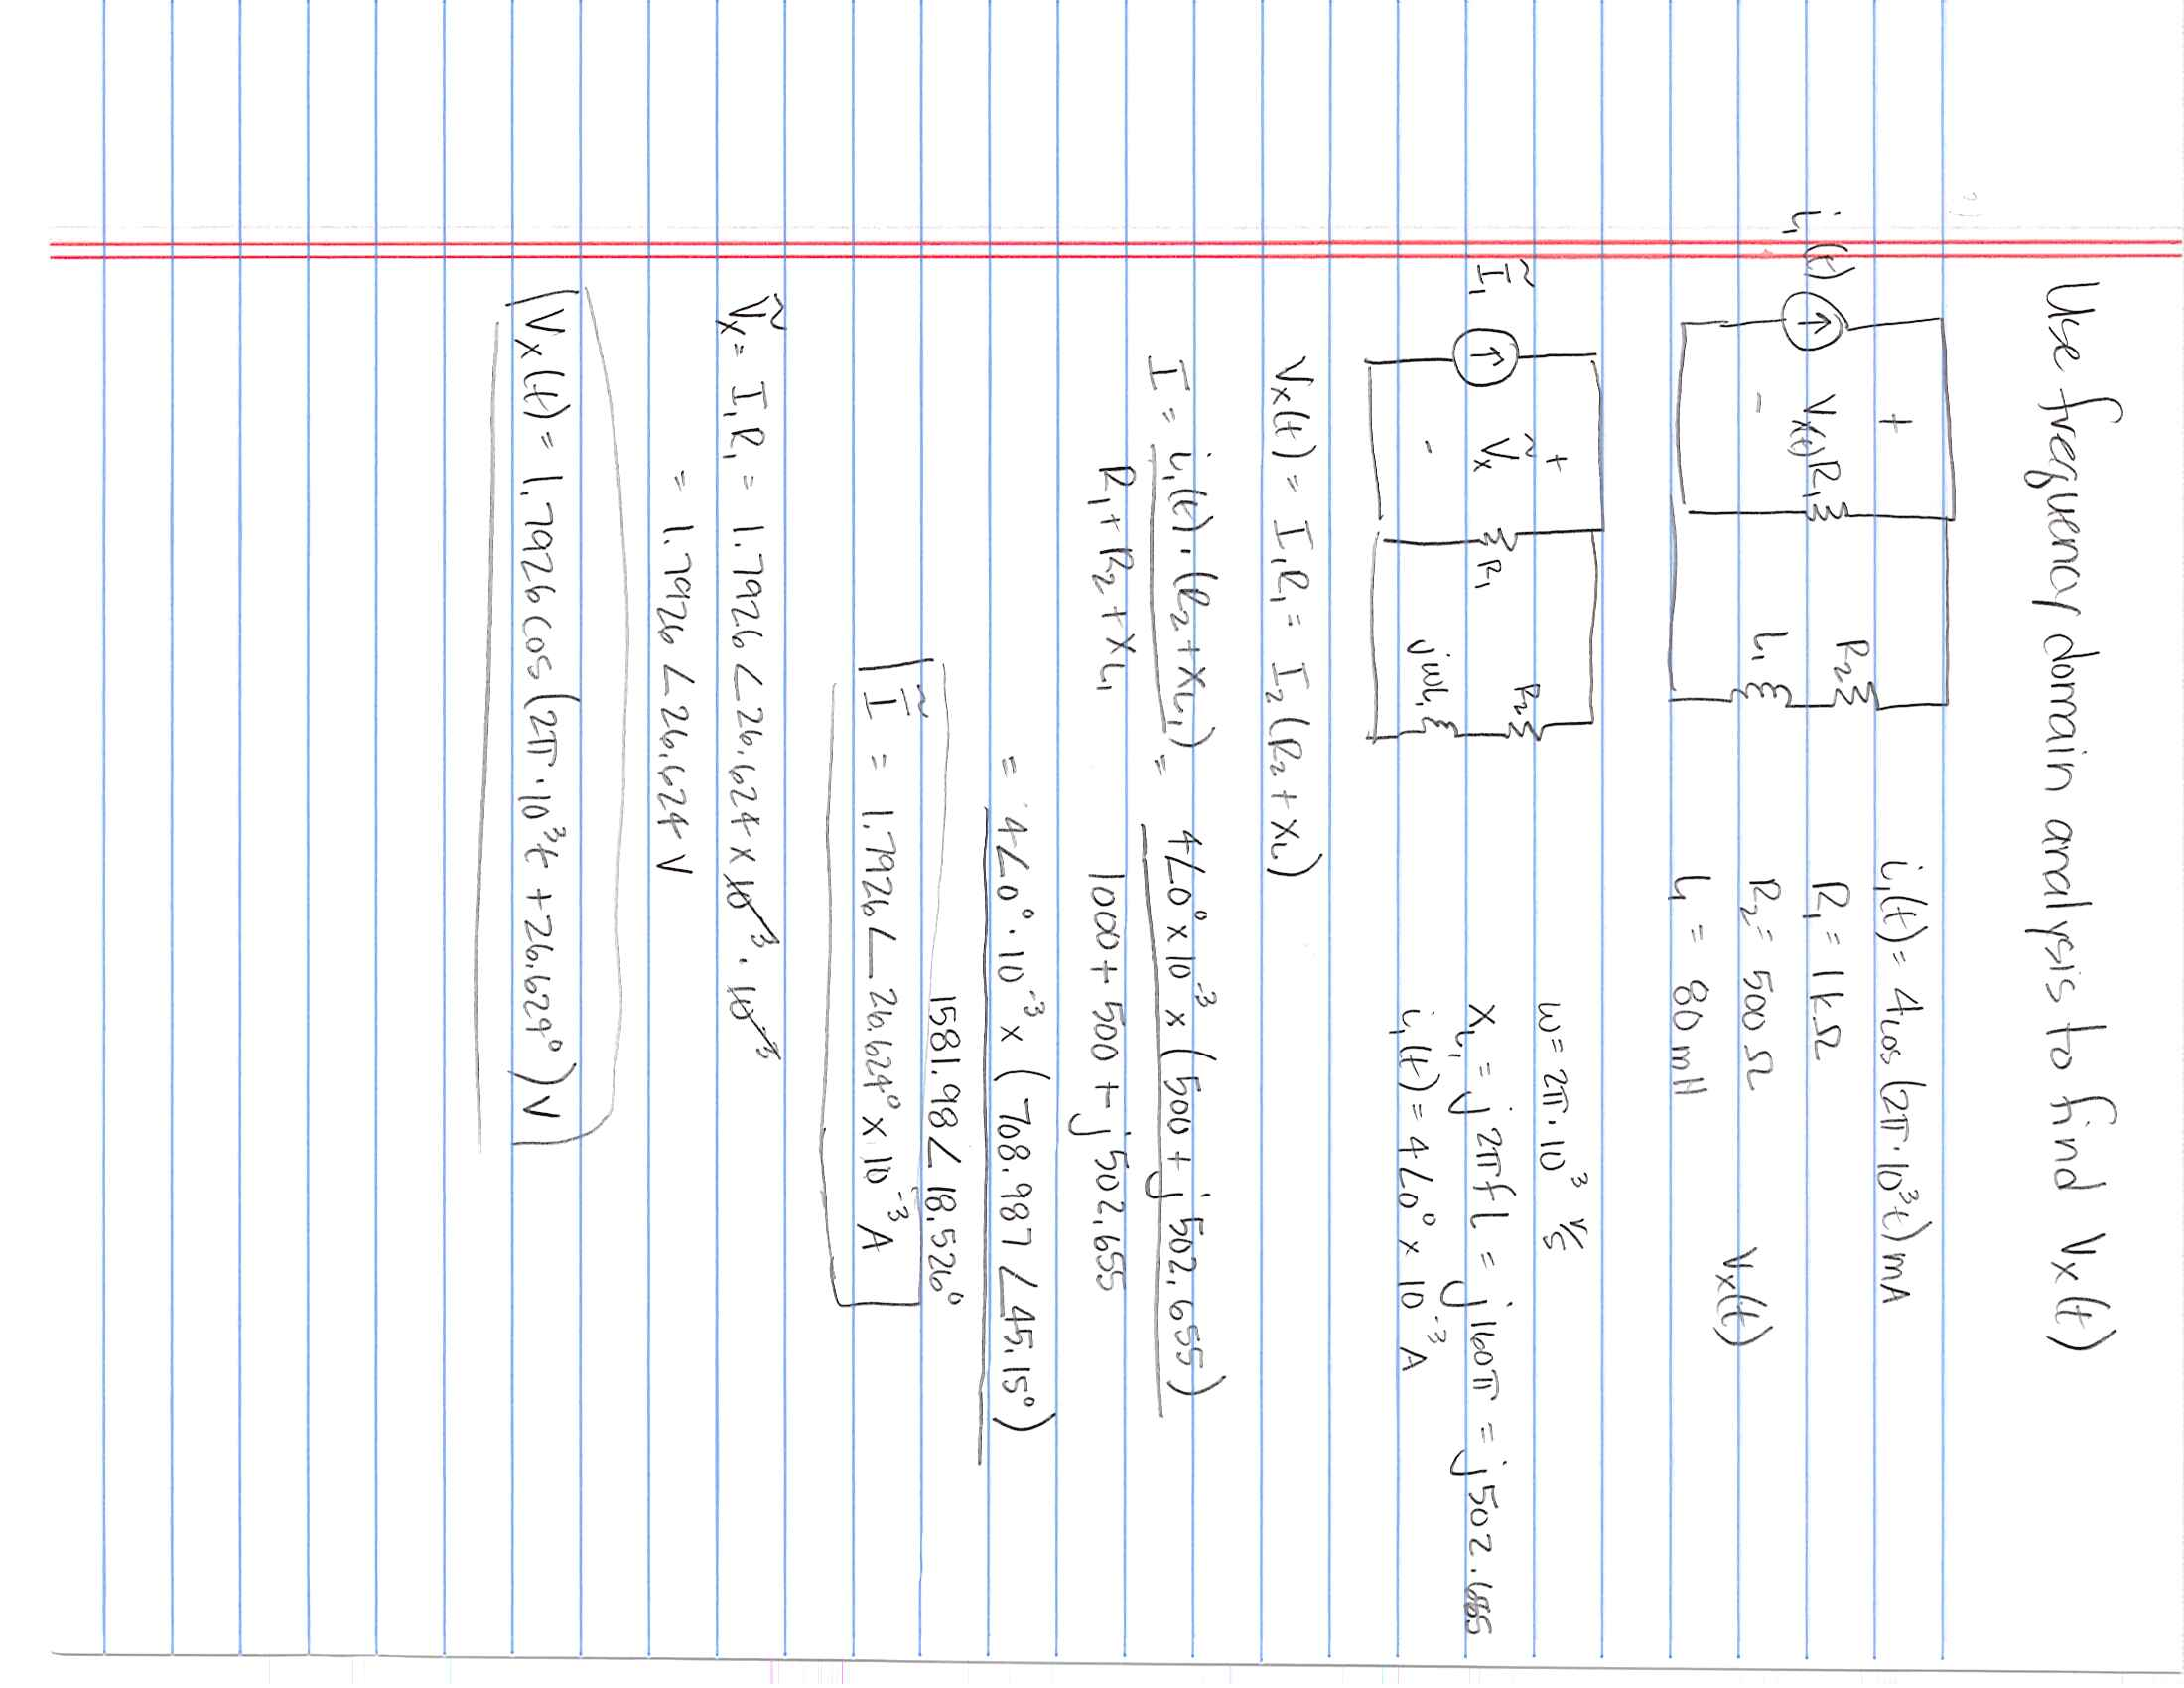 Use frequency domain analysis to find Vx(t)
i₁(t) = 4cos(2π·10³t) mA
R₁ = 1kΩ
R₂ = 500Ω
L₁ = 80mH
Vx(t)
i₁(t)
+
Vx(t)
-
R₁
R₂
L₁
ω = 2π·10³ r/s
X_L₁ = j2πfL = j160π = j502.655
i₁(t) = 4∠0° x 10⁻³ A
Ĩ₁
+
Ṽx
-
R₁
R₂
jωL₁
Vx(t) = I₁R₁ = I₂(R₂+X_L)
I = i₁(t)·(R₂+X_L₁) / R₁+R₂+X_L₁ = 4∠0° x 10⁻³ x (500 + j502.655) / 1000 + 500 + j502.655
= 4∠0°·10⁻³ x (708.987∠45.15°) / 1581.98∠18.526°
Ĩ = 1.7926∠26.624° x 10⁻³ A
Ṽx = I₁R₁ = 1.7926∠26.624 x 10⁻³·10³
= 1.7926∠26.624 V
Vx(t) = 1.7926cos(2π·10³t + 26.629°) V